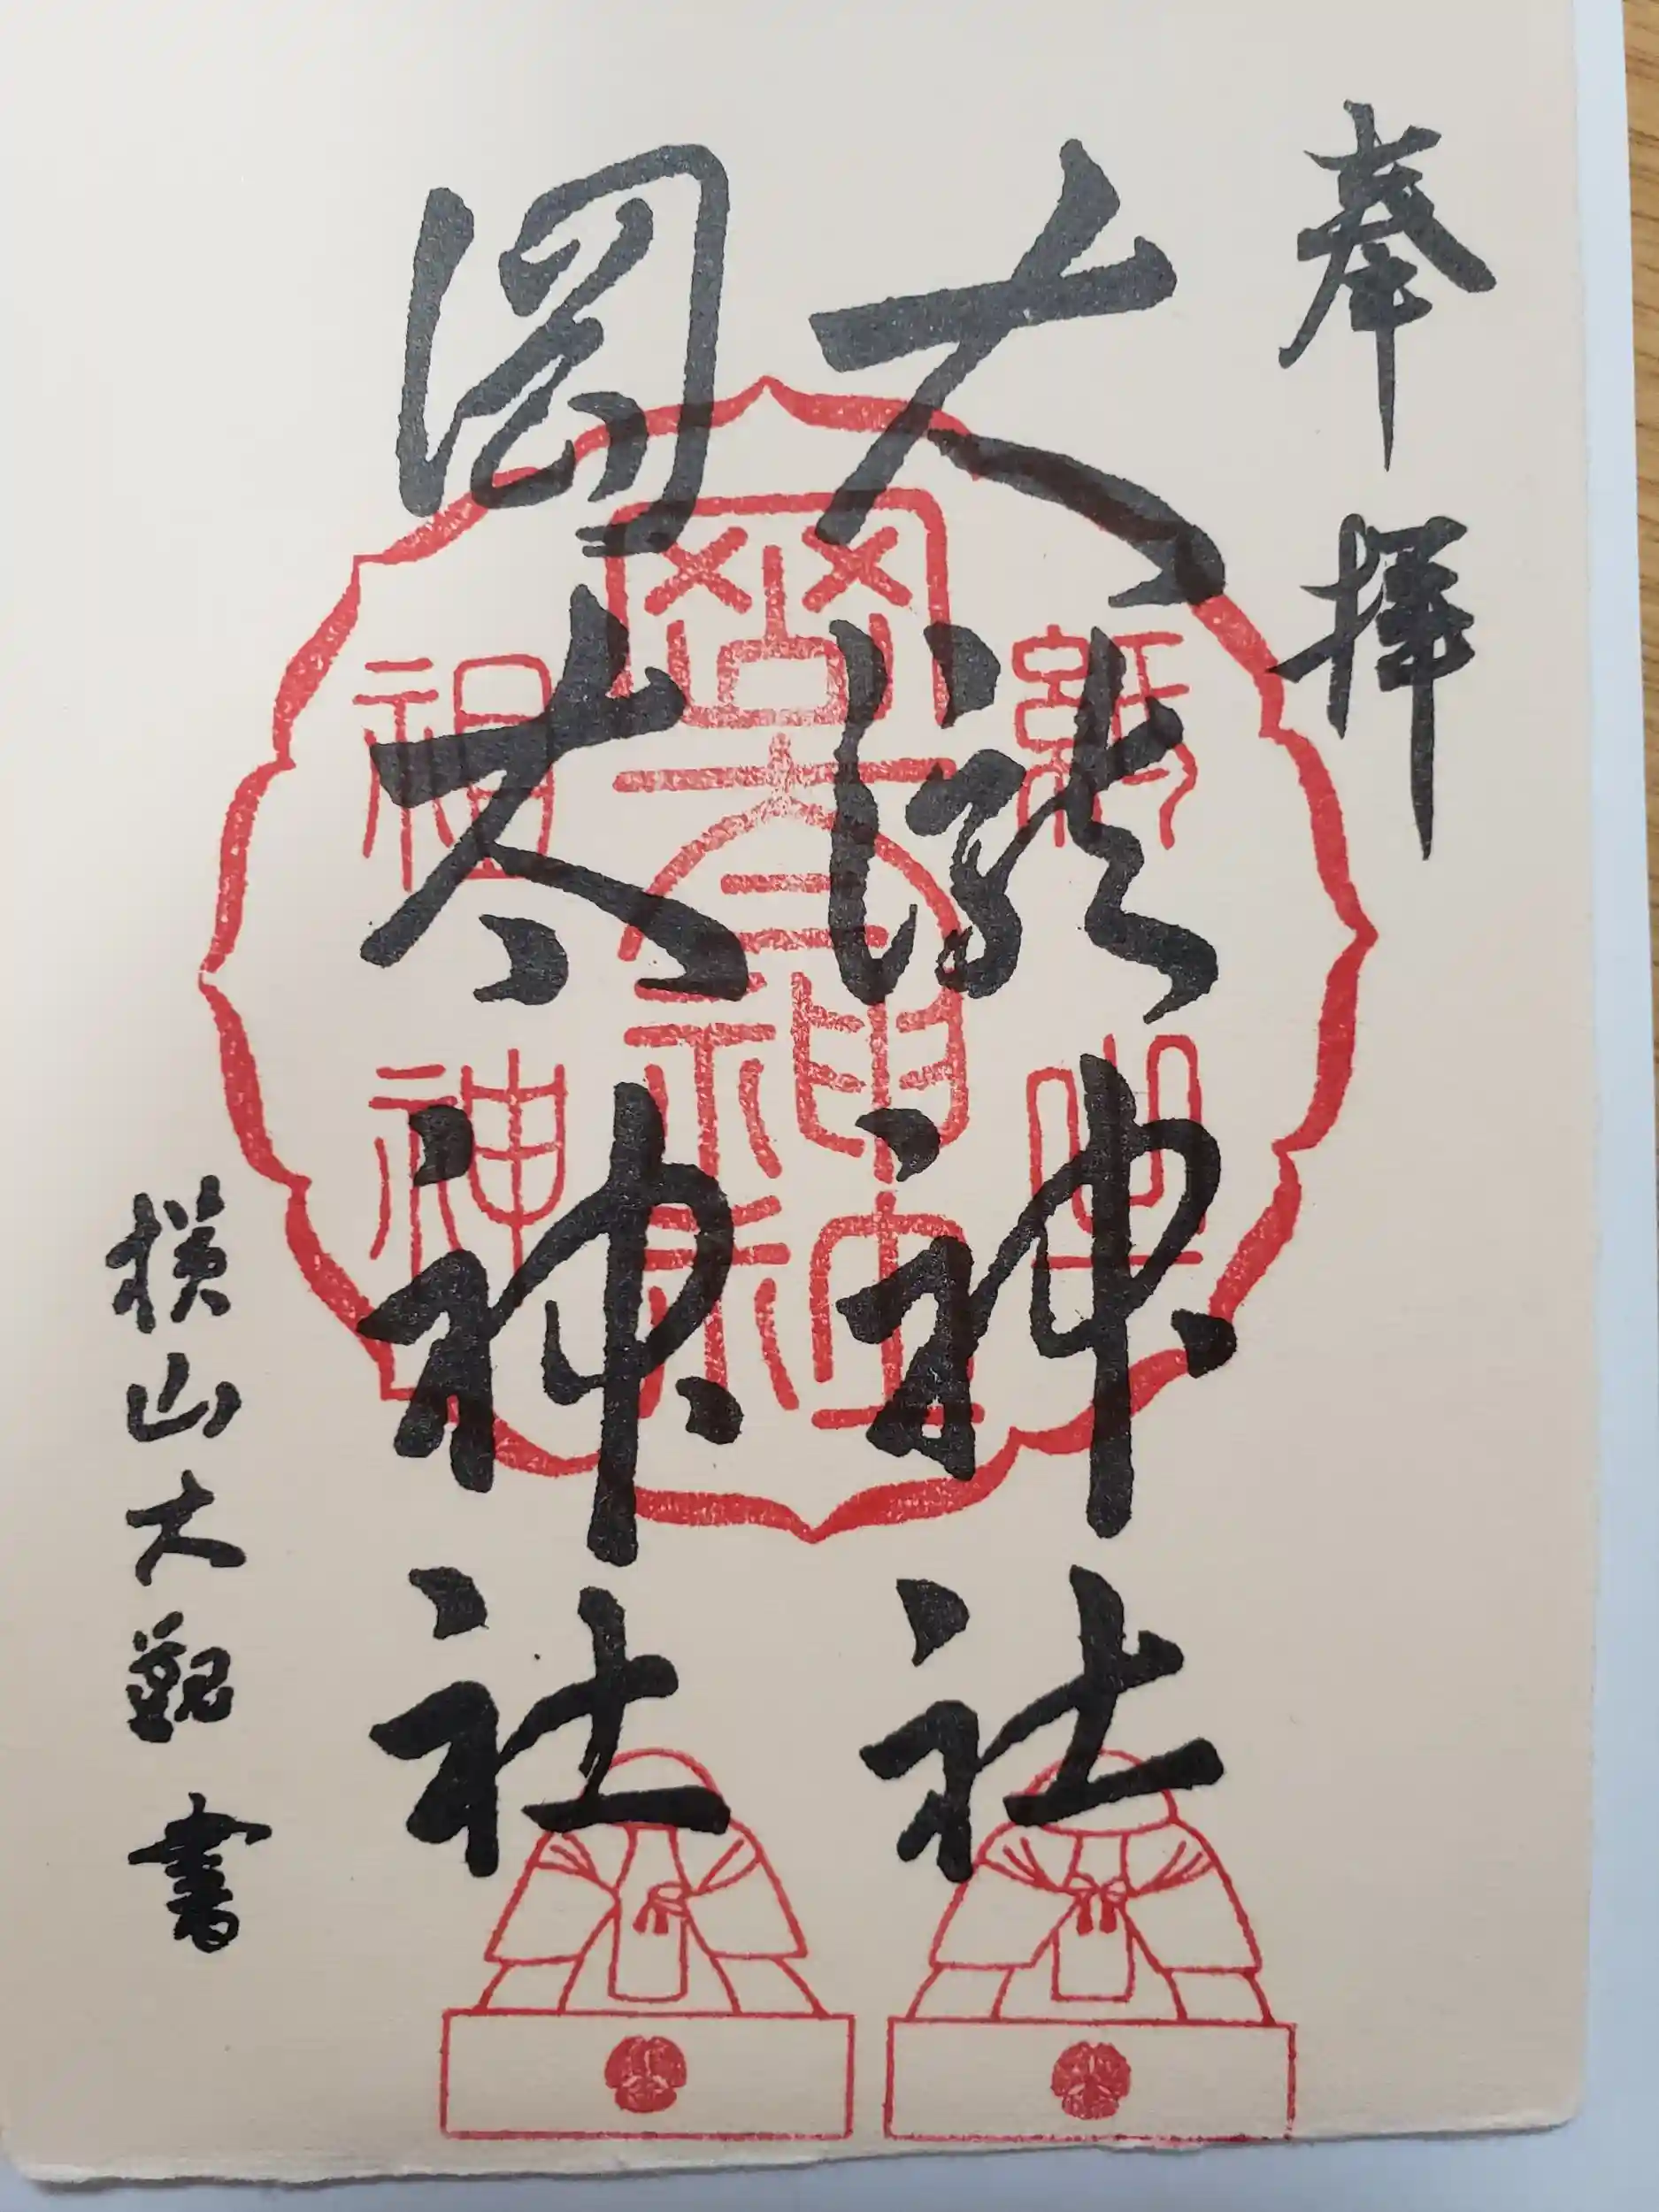 奉拝
大瀧神社
岡太神社
横山大観書
紙山
岡太神社
祖神